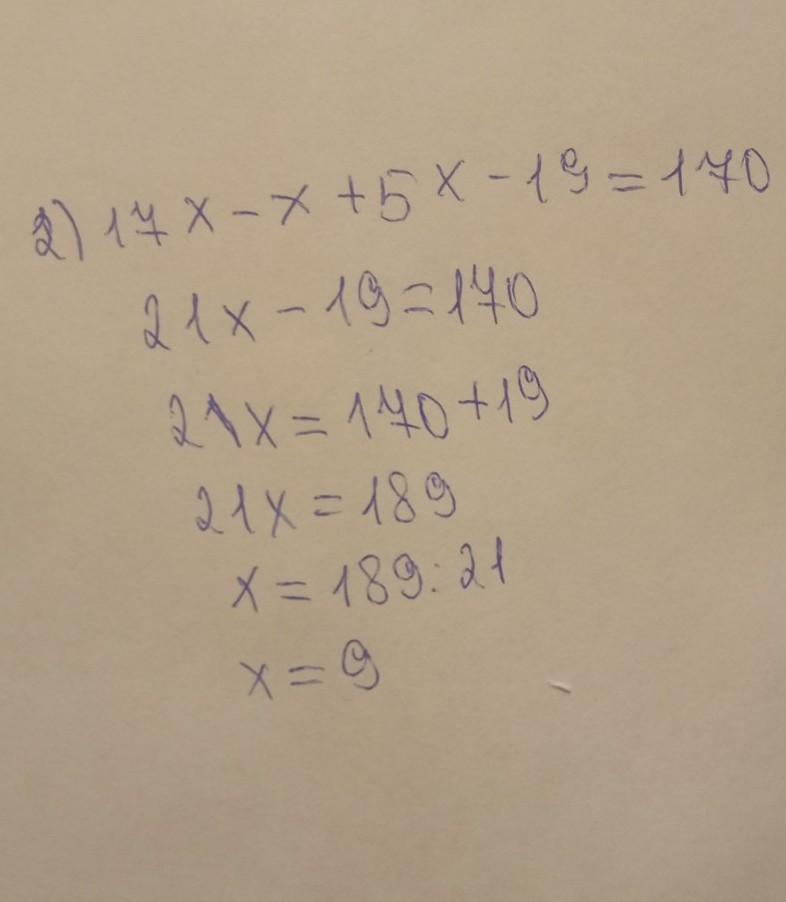 2) 17x - x + 5x - 19 = 170
21x - 19 = 170
21x = 170 + 19
21x = 189
x = 189 : 21
x = 9